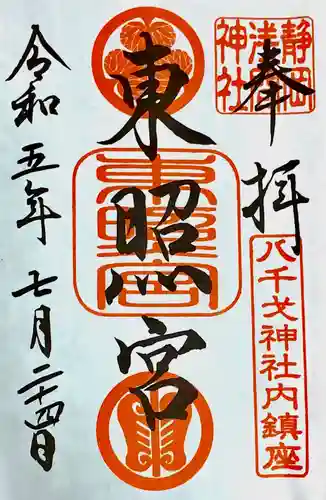 奉拝
静岡浅間神社
八千戈神社内鎮座
東照宮
東照宮
令和五年七月二十四日